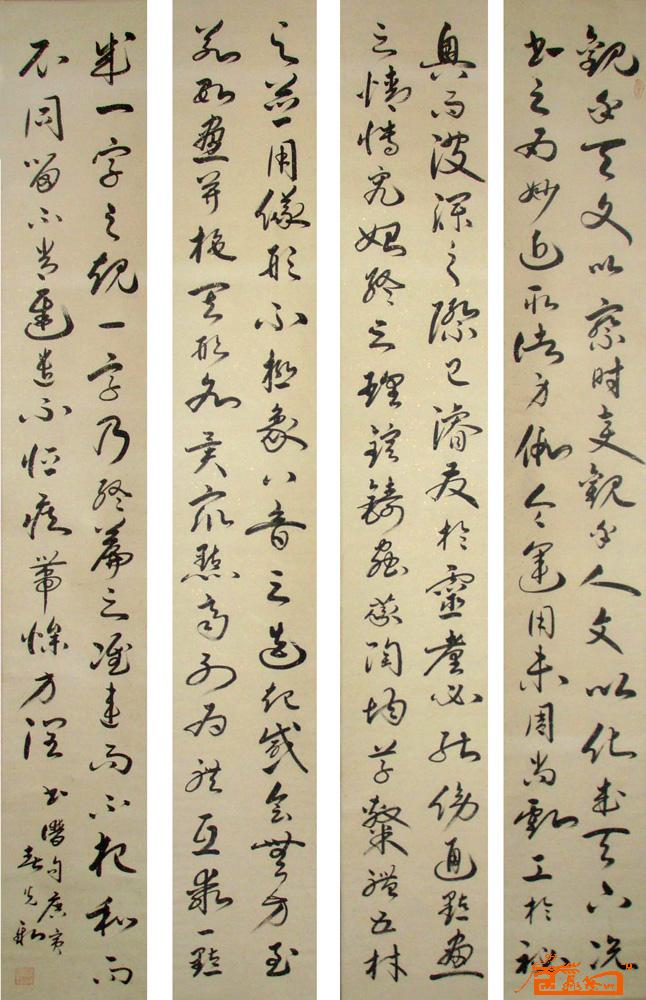 觀乎天文以察时变觀乎人文以化成天下况
书之为妙近取诸身假令運用未周尚虧工於秘
奥而波瀾之際已濬發於靈臺必能傍通點畫
之情博究始終之理镕鑄蟲篆陶均草隸體五材
之並用儀形不極象八音之迭起感会無方至
若數畫并施其形各異衆點齊列为體互乖一點
成一字之規一字乃終篇之准違而不犯和而
不同留不常遲遣不恒疾帶燥方潤